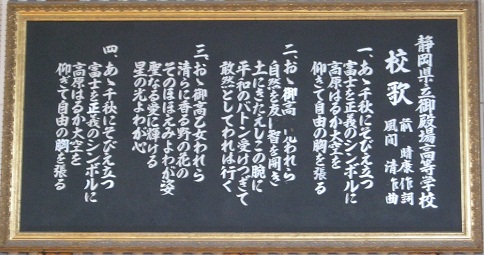 静岡県立御殿場高等学校
校歌
前 晴康 作詞
風間 清 作曲
一、あゝ千秋にそびえ立つ
富士を正義のシンボルに
高原はるか大空を
仰ぎて自由の胸を張る
二、おゝ御高 われら
自然を友とし智を開き
土にきたえしこの腕に
平和のバトン受けつぎて
敢然としてわれは行く
三、おゝ御高乙女われら
清らに香る野の花の
そのほほえみよわが姿
聖なる夢に輝ける
星の光よわが心
四、あゝ千秋にそびえ立つ
富士を正義のシンボルに
高原はるか大空を
仰ぎて自由の胸を張る